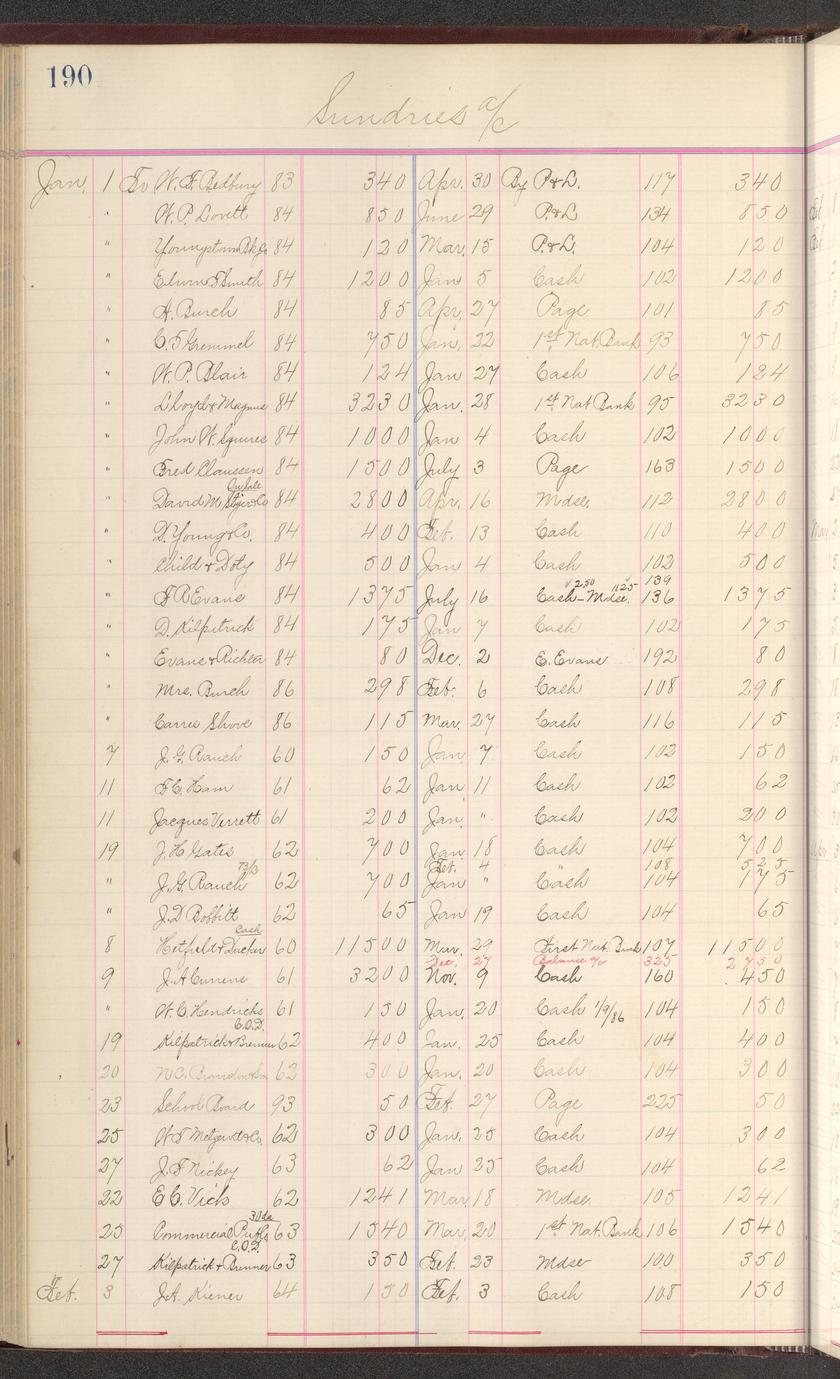 190
Sundries a/c
Jan. 1 To W. F. Bedbury 83 340 Apr. 30 By P.&L. 117 340
" W. P. Lovett 84 850 June 29 P.&L 134 850
" Youngstown Co 84 120 Mar. 15 P.&L. 104 120
" Edwin F Smith 84 1200 Jan 5 Cash 102 1200
" A. Burch 84 85 Apr. 27 Page 101 85
" C. F. Gremmel 84 750 Jan. 22 1st Nat. Bank 93 750
" W. P. Blair 84 124 Jan 27 Cash 106 124
" Lloyd & Magnus 84 3230 Jan. 28 1st Nat Bank 95 3230
" John W. Squires 84 1000 Jan 4 Cash 102 1000
" Fred Claussen 84 1500 July 3 Page 163 1500
On Sale
" David M. & Co 84 2800 Apr. 16 Mdse. 112 2800
" D. Young & Co. 84 400 Feb. 13 Cash 110 400
" Child & Doty 84 500 Jan 4 Cash 102 500
2.50 1125 139
" F B Evans 84 1375 July 16 Cash-Mdse. 136 1375
" D. Kilpatrick 84 175 Jan 7 Cash 102 175
" Evans & Richter 84 80 Dec. 2 E. Evans 192 80
" Mrs. Burch 86 298 Feb. 6 Cash 108 298
" Carrie Shove 86 115 Mar. 27 Cash 116 115
7 J. G. Rauch 60 150 Jan 7 Cash 102 150
11 F. C. Ham 61 62 Jan 11 Cash 102 62
11 Jacques Verrett 61 200 Jan " Cash 102 200
19 J. H Gates 62 700 Jan 18 Cash 104 700
Feb. 4 " 108 525
" J. G. Rauch 62 700 Jan " Cash 104 175
" J. D Bobbitt 62 65 Jan 19 Cash 104 65
Cash
8 Hetfield & Ducker 60 11500 Mar. 29 First Nat. Bank 107 11500
Dec. 27 Balance a/c 325 2750
9 J. A Currens 61 3200 Nov. 9 Cash 160 450
" W. C. Hendricks 61 150 Jan. 20 Cash 1/9/86 104 150
C.O.D.
19 Kilpatrick & Brenner 62 400 Jan. 25 Cash 104 400
20 N C. Brandon & Son 62 300 Jan. 20 Cash 104 300
23 School Board 93 50 Feb. 27 Page 225 50
25 W F Metzerott & Co. 62 300 Jan. 25 Cash 104 300
27 J. F Nickey 63 62 Jan 25 Cash 104 62
22 E C. Vick 62 1241 Mar 18 Mdse. 105 1241
25 Commercial 63 1540 Mar. 20 1st Nat. Bank 106 1540
C.O.D.
27 Kilpatrick & Brunner 63 350 Feb. 23 Mdse 100 350
Feb. 3 J. A. Kiener 64 150 Feb. 3 Cash 108 150